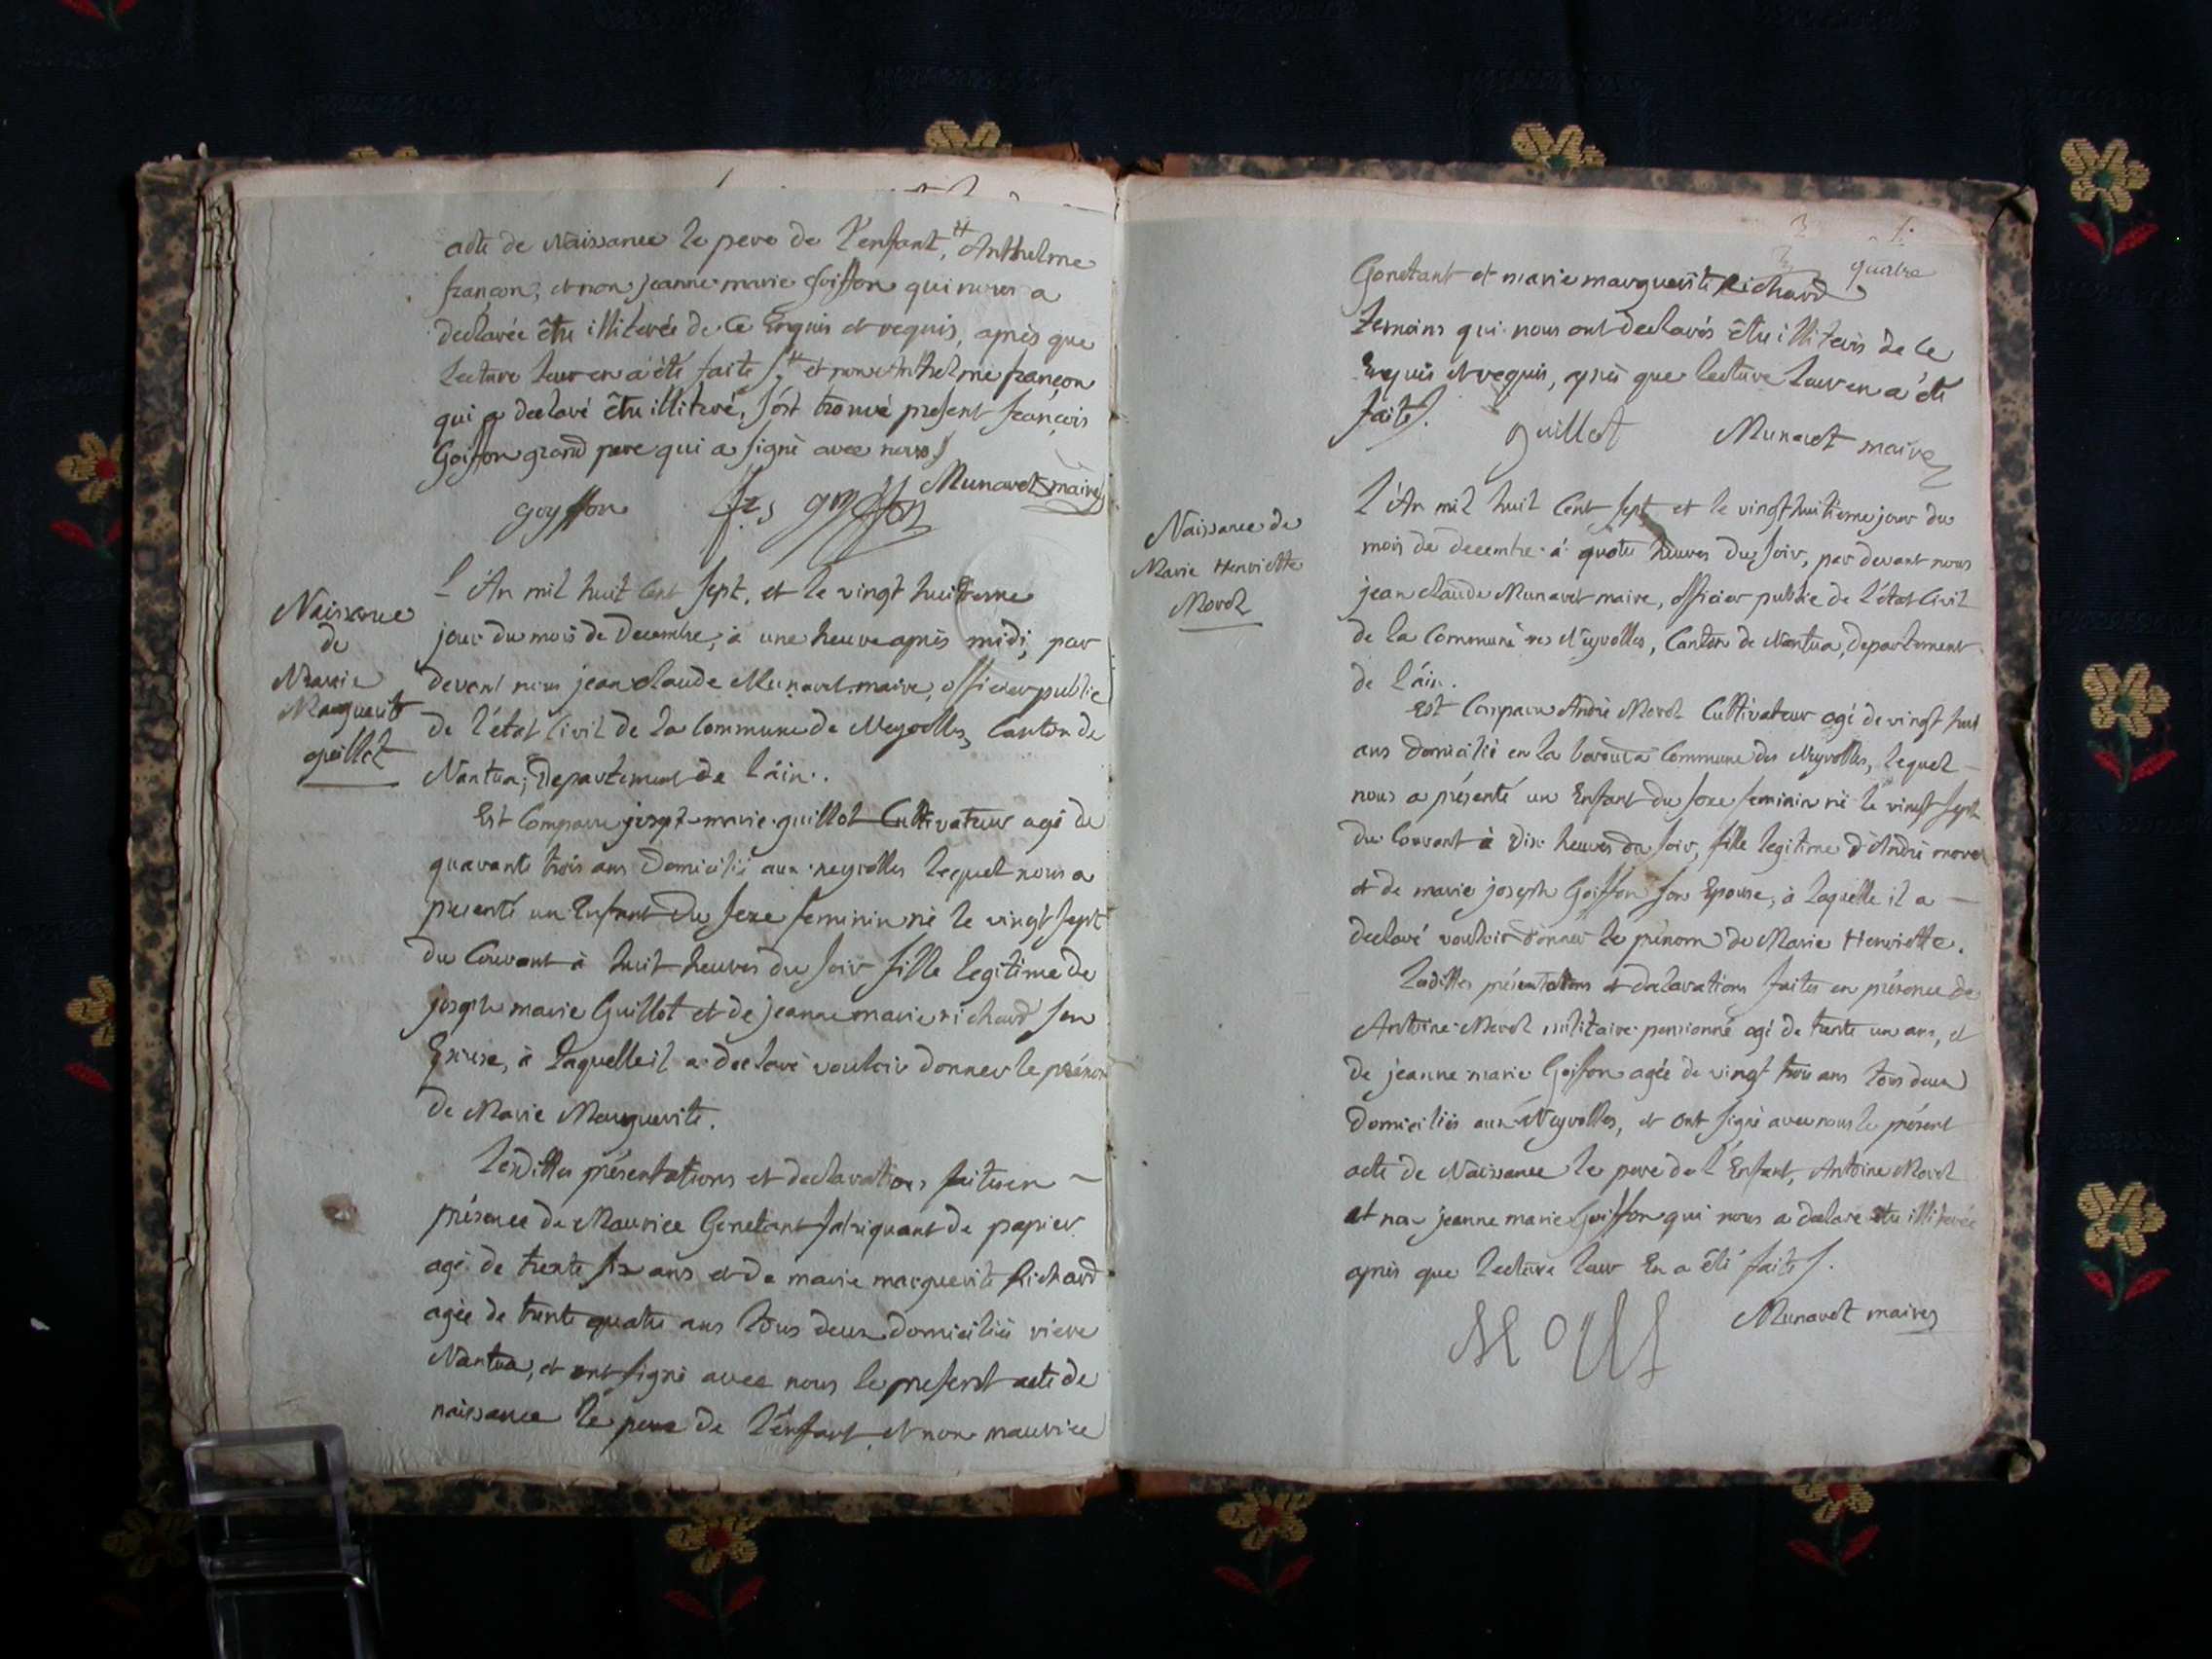 acte de Naissance le pere de l'enfant, # Anthelme
françon, et non jeanne marie Goiffon qui nous a
declarée être illiterée de ce Enquis et requis, après que
lecture leur en a été faite /. # et non Anthelme françon
qui a declaré être illiteré, s'ést trouvé présent françois
Goiffon grand pere qui a signé avec nous /
Munaret maire
goyffon frs goyffon
Naissance
de
Marie
Marguerite
guillot
L'An mil huit Cent sept, et le vingt huitieme
jour du mois de Decembre, à une heure après midi, par
devant nous jean claude Munaret maire, officier public
de l'état Civil de la Commune de Neyrolles, Canton de
Nantua, Departement de l'ain.
Est Comparu joseph marie guillot Cultivateur agé de
quarante trois ans Domicilié aux neyrolles lequel nous a
presenté un Enfant du sexe feminin né le vingt sept
du Courant à huit heures du soir fille legitime de
joseph marie Guillot et de jeanne marie richard son
Epouse, à laquelle il a declaré vouloir donner le prénom
de Marie Marguerite.
Lesdittes présentations et declarations faites en
présence de Maurice Gonetant fabriquant de papier
agé de trente six ans et de marie marguerite Richard
agée de trente quatre ans tous deux domiciliés riere
Nantua, et ont signé avec nous le present acte de
naissance le pere de l'enfant, et non maurice
quatre
Gonetant et marie marguerite Richard
temoins qui nous ont declarés être illiterés de ce
Enquis et requis, après que lecture leur en a été
faite /.
guillot Munaret maire
Naissance de
Marie Henriette
Morel
L'An mil huit Cent sept et le vingt huitieme jour du
mois de decembre à quatre heures du soir, par devant nous
jean claude Munaret maire, officier public de l'état Civil
de la Commune des Neyrolles, Canton de Nantua, departement
de l'ain.
Est Comparu André Morel Cultivateur agé de vingt huit
ans domicilié en la Commune des Neyrolles, lequel
nous a présenté un Enfant du sexe feminin né le vingt sept
du Courant à dix heures du soir, fille legitime d'André morel
et de marie joseph Goiffon son Epouse, à laquelle il a
declaré vouloir donner le prénom de Marie Henriette.
Lesdittes présentations et declarations faites en présence de
Antoine Morel militaire pensionné agé de trente un ans, et
de jeanne marie Goiffon agée de vingt trois ans tous deux
domiciliés aux Neyrolles, et ont signé avec nous le présent
acte de Naissance le pere de l'Enfant, Antoine Morel
et non jeanne marie Goiffon qui nous a declaré être illiterée
après que lecture leur En a été faite /.
Munaret maire